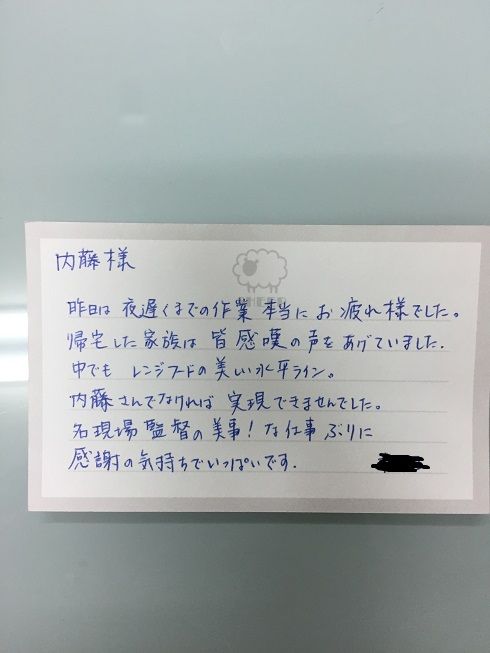 内藤様
昨日は 夜遅くまでの作業 本当に お疲れ様でした。
帰宅した 家族は 皆 感嘆の声を あげていました.
中でも レンジフードの 美しい水平ライン。
内藤さんでなければ 実現できませんでした。
名現場監督の 美事! な仕事ぶりに
感謝の気持ちでいっぱいです.